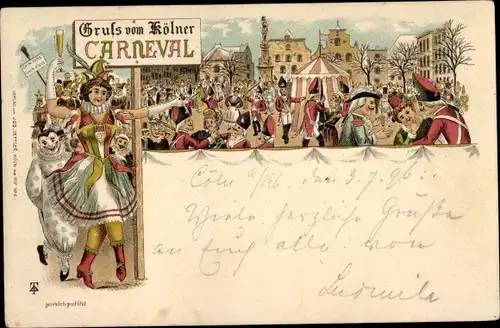 Gruss vom Kölner
CARNEVAL
Cöln a/Rh. den 3.7.96.
Viele herzliche Grüße
an Euch alle von
Ludmila